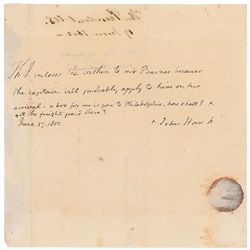 The President US.
17 June 1802
Th: J. incloses the within to mr Barnes because
the capitain will probably apply to him on his
arrival. a box for me is gone to Philadelphia. how shall I
get the freight paid there?
June 17. 1802. John